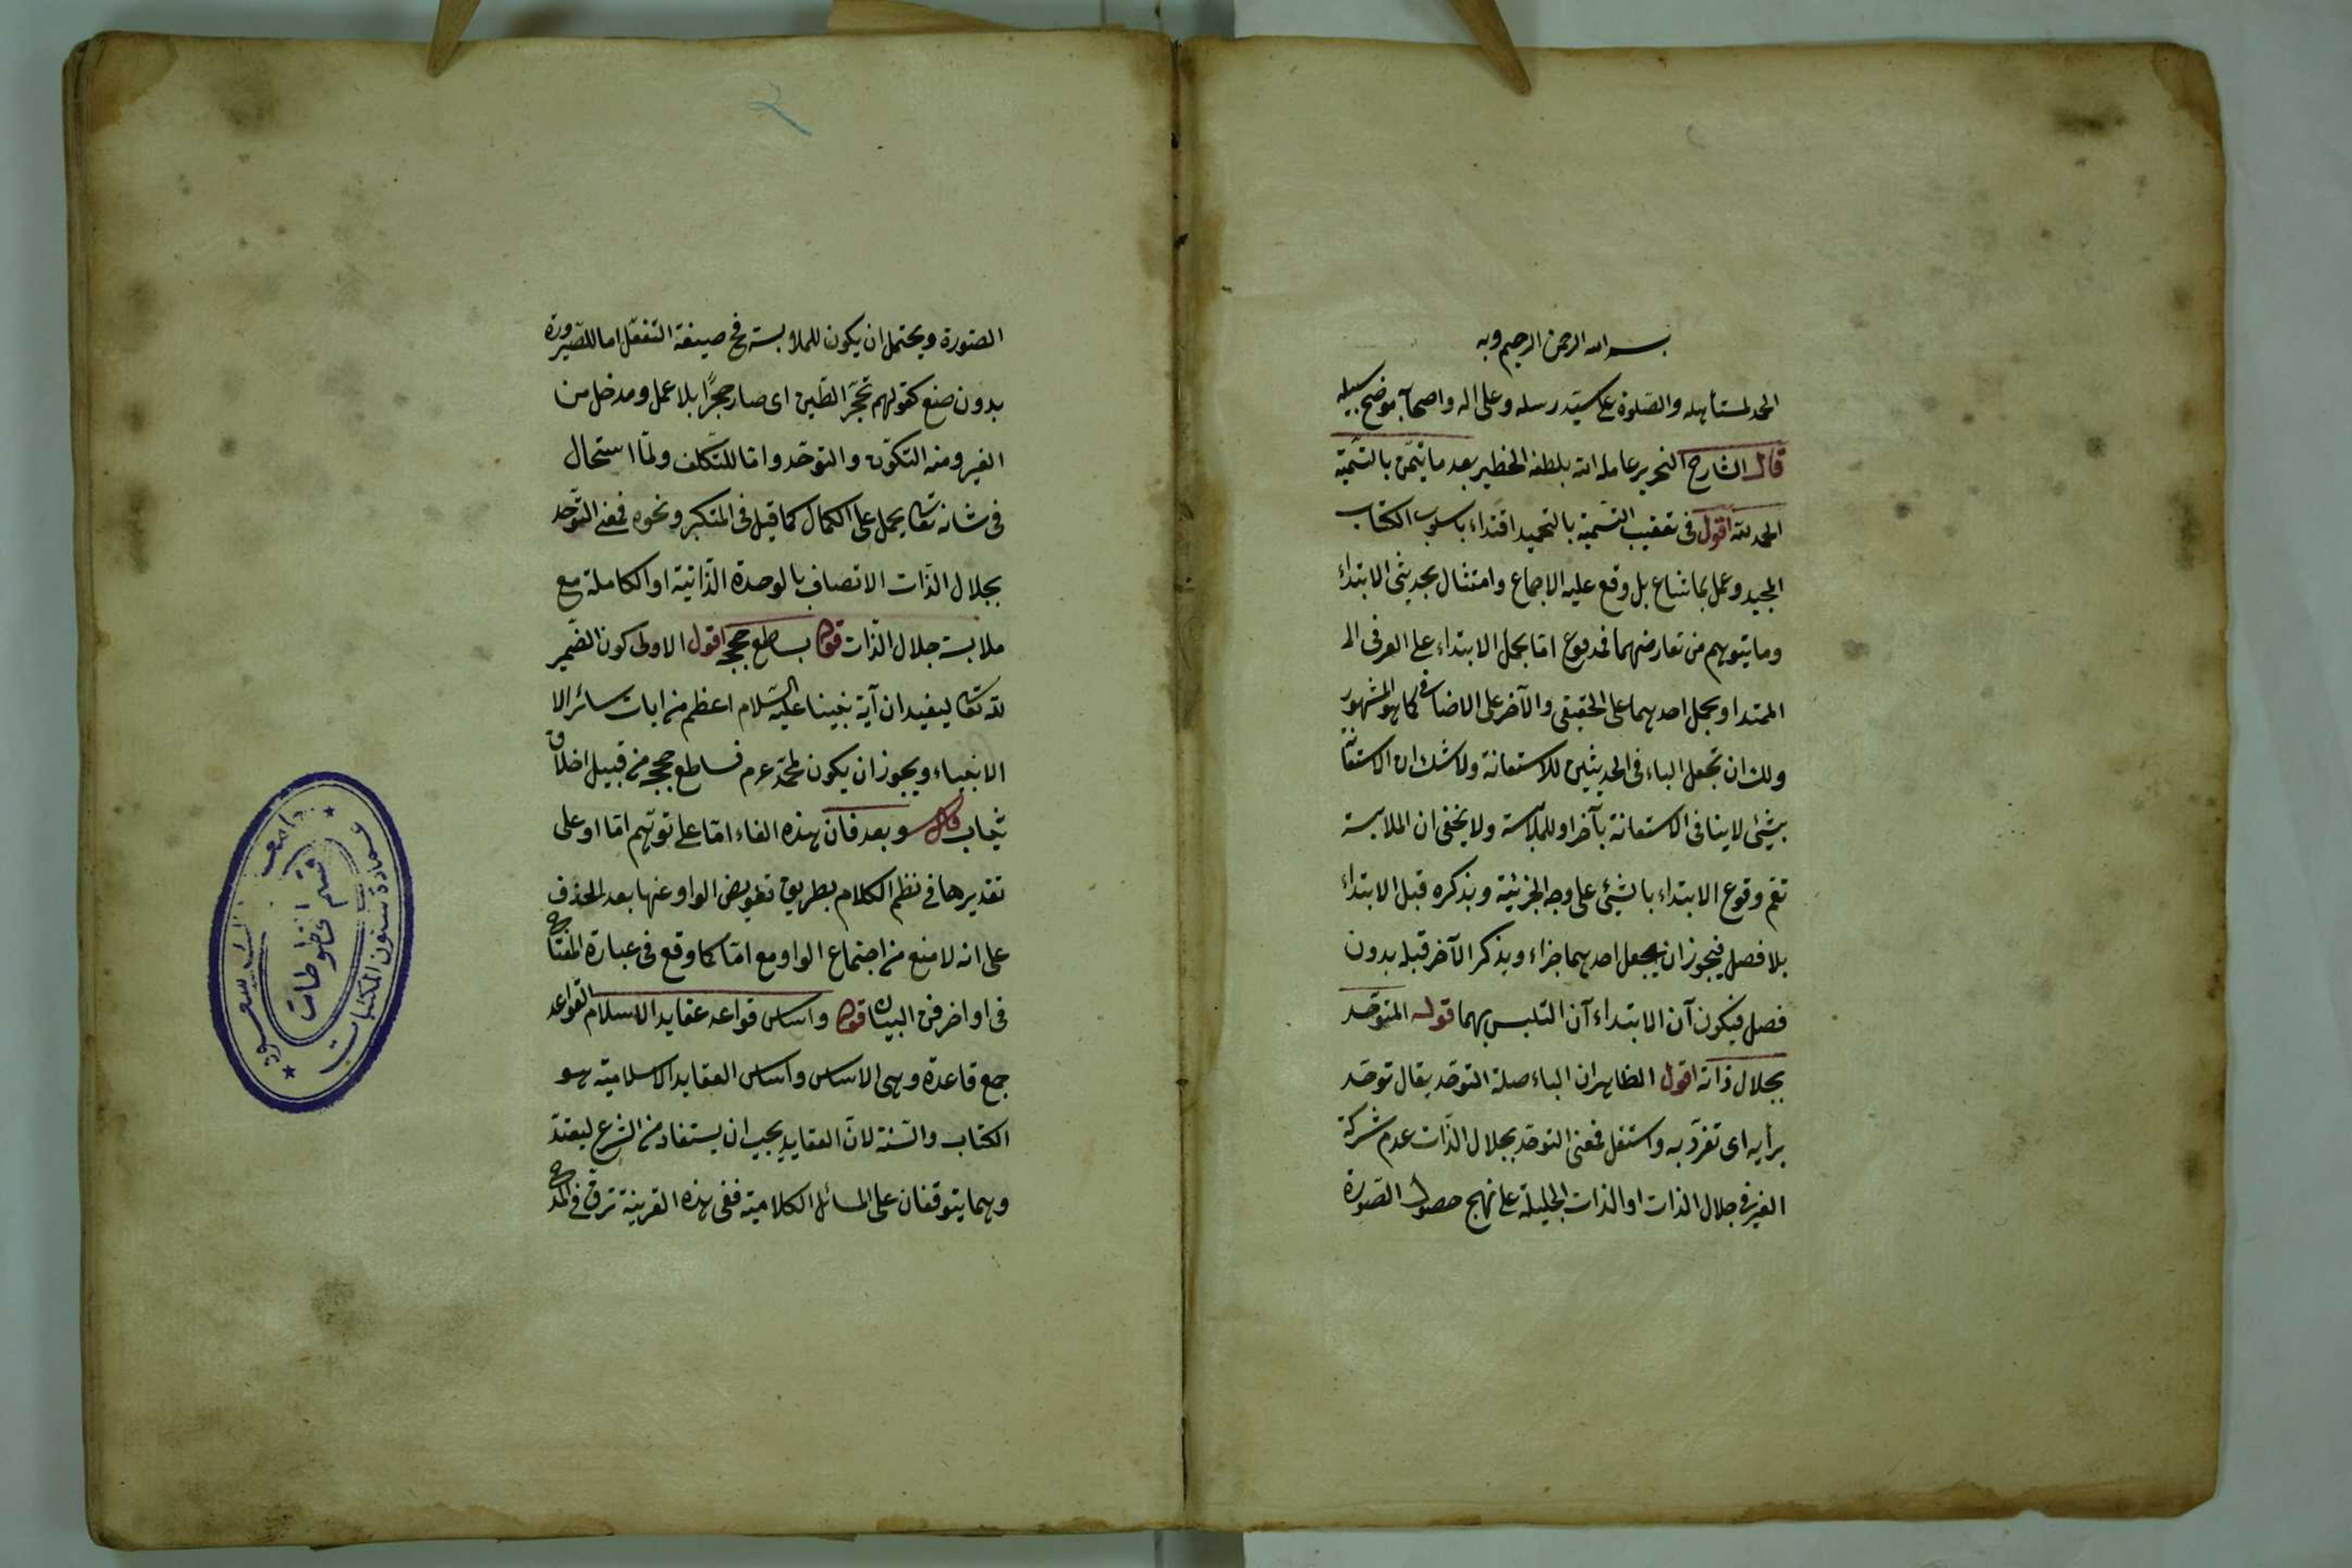 بسم الله الرحمن الرحيم وبه
الحمد لمستأهله والصلوة على سيد رسله وعلى اله واصحابه موضح سبيله
قال الشارح النحرير عامله الله بلطفه الخطير بعد ما يتمن بالتسمية
الحمد لله اقول فى تعقيب التسمية بالتحميد اقتداء باسلوب الكتاب
المجيد وعمل بما شاع بل وقع عليه الاجماع وامتثال بحديثى الابتداء
وما يتوهم من تعارضهما فمدفوع اما بحمل الابتداء على العرفى الـ
الممتد او بحمل احدهما على الحقيقى والآخر على الاضافى كما هو المشهور
ولك ان تجعل الباء فى الحديثين للاستعانة ولا شك ان الاستعانة
بشئ لا ينافى الاستعانة بآخر او للملابسة ولا يخفى ان الملابسة
تعم وقوع الابتداء بالشئ على وجه الجزئية وبذكره قبل الابتداء
بلا فصل فيجوز ان يجعل احدهما جزاء ويذكر الآخر قبله بدون
فصل فيكون آن الابتداء آن التلبس بهما قوله المتوحد
بجلال ذاته اقول الظاهر ان الباء صلة التوحد يقال توحد
برأيه اى تفرد به واستقل فمعنى التوحد بجلال الذات عدم شركة
الغير فى جلال الذات او الذات الجليلة على نهج حصول الصورة
الصورة ويحتمل ان يكون للملابسة فح صيغة التفعل اما للصيرورة
بدون صنع كقولهم تحجر الطين اى صار حجرًا بلا عمل ومدخل من
الغير ومنه التكون والتوحد واما للتكلف ولما استحال
فى شانه تعالى يحمل على الكمال كما قيل فى المتكبر ونحوه فمعنى التوحد
بجلال الذات الاتصاف بالوحدة الذاتية او الكاملة مع
ملابسة جلال الذات قوله بساطع حججه اقول الاولى كون الضمير
لله تعالى ليفيد ان آية نبينا عليه السلام اعظم من ايات سائر الا
الانبياء ويجوز ان يكون لمحمد عرم فساطع حججه من قبيل اخلاق
ثياب قال وبعد فان هذه الفاء اما على توهم اما او على
تقديرها فى نظم الكلام بطريق تعويض الواو عنها بعد الحذف
على انه لا منع من اجتماع الواو مع اما كما وقع فى عبارة المفتاح
فى اواخر فن البيان قوله واساس قواعد عقايد الاسلام القواعد
جمع قاعدة وهى الاساس واساس العقايد الاسلامية هو
الكتاب والسنة لان العقايد يجب ان يستفاد من الشرع ليعتد
وهما يتوقفان على المسائل الكلامية ففى هذه القرينة ترق فى المدح
جامعة الملك سعود
عمادة شئون المكتبات
قسم المخطوطات